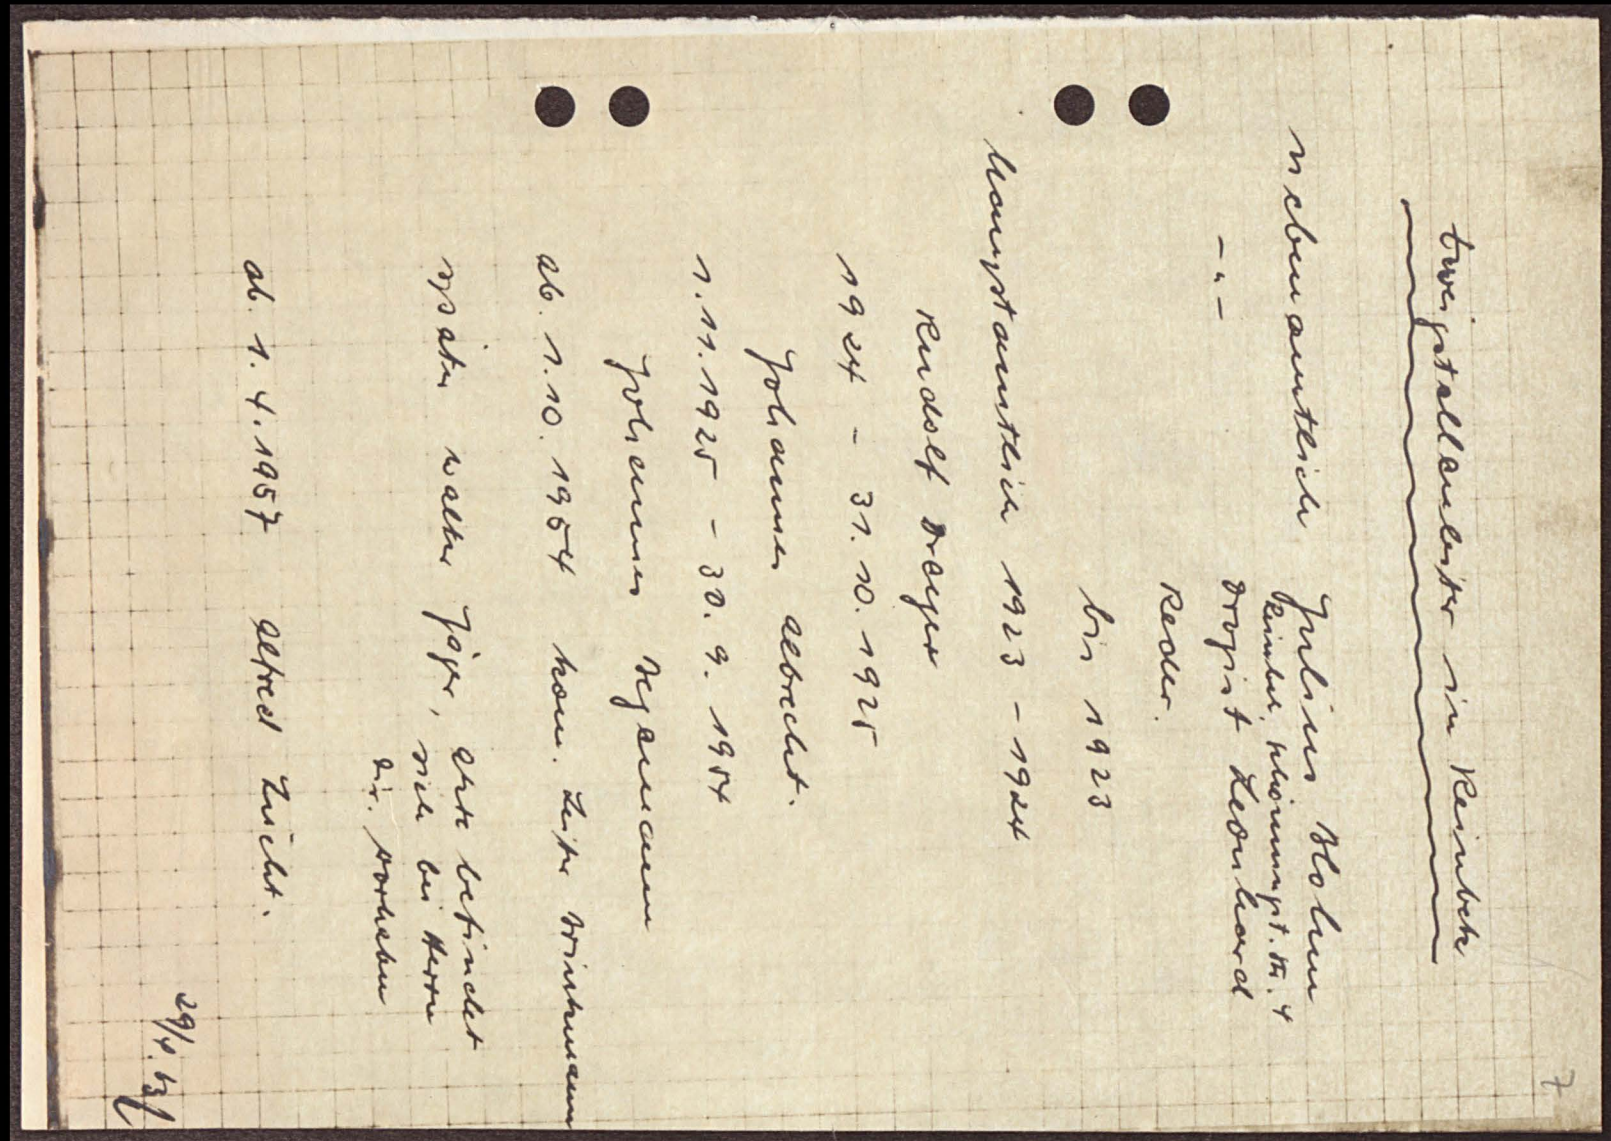 7
Zweigstellenleiter in Reinbek
nebenamtlich Julius Blohm
Reinbek, Schönningst. Str. 4
-"- Drogist Leonhard
Reder.
bis 1923
Hauptamtlich 1923 - 1924
Rudolf Dreyer
1924 - 31.10.1925
Johannes Albrecht.
1.11.1925 - 30.9.1954
Johannes Degemann
ab. 1.10.1954 kom. Leiter Brinkmann
später Walter Jäger, Akte befindet
sich bei Herrn
Dir. Vorhaben
ab. 1.4.1957 Alfred Lucht.
29/4.63